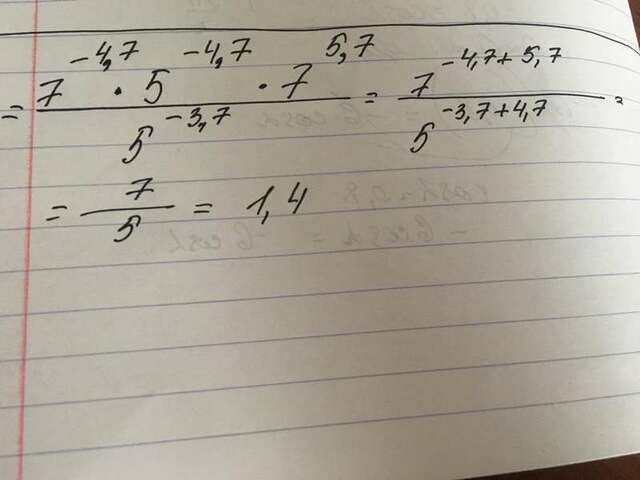 = 7^-4,7 · 5^-4,7 · 7^5,7 / 5^-3,7 = 7^-4,7+5,7 / 5^-3,7+4,7 =
= 7/5 = 1,4